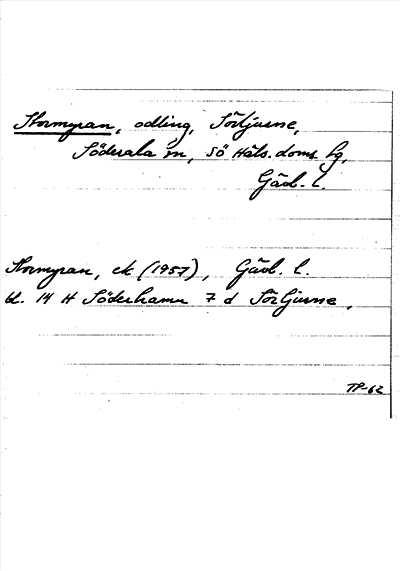 Stormyran, odling, Sörljusne,
Söderala sn, Sö Häls. doms. hg,
Gävl. l.
Stormyran, ek (1957), Gävl. l.
bl. 14 H Söderhamn 7 d Sörljusne.
TP-62